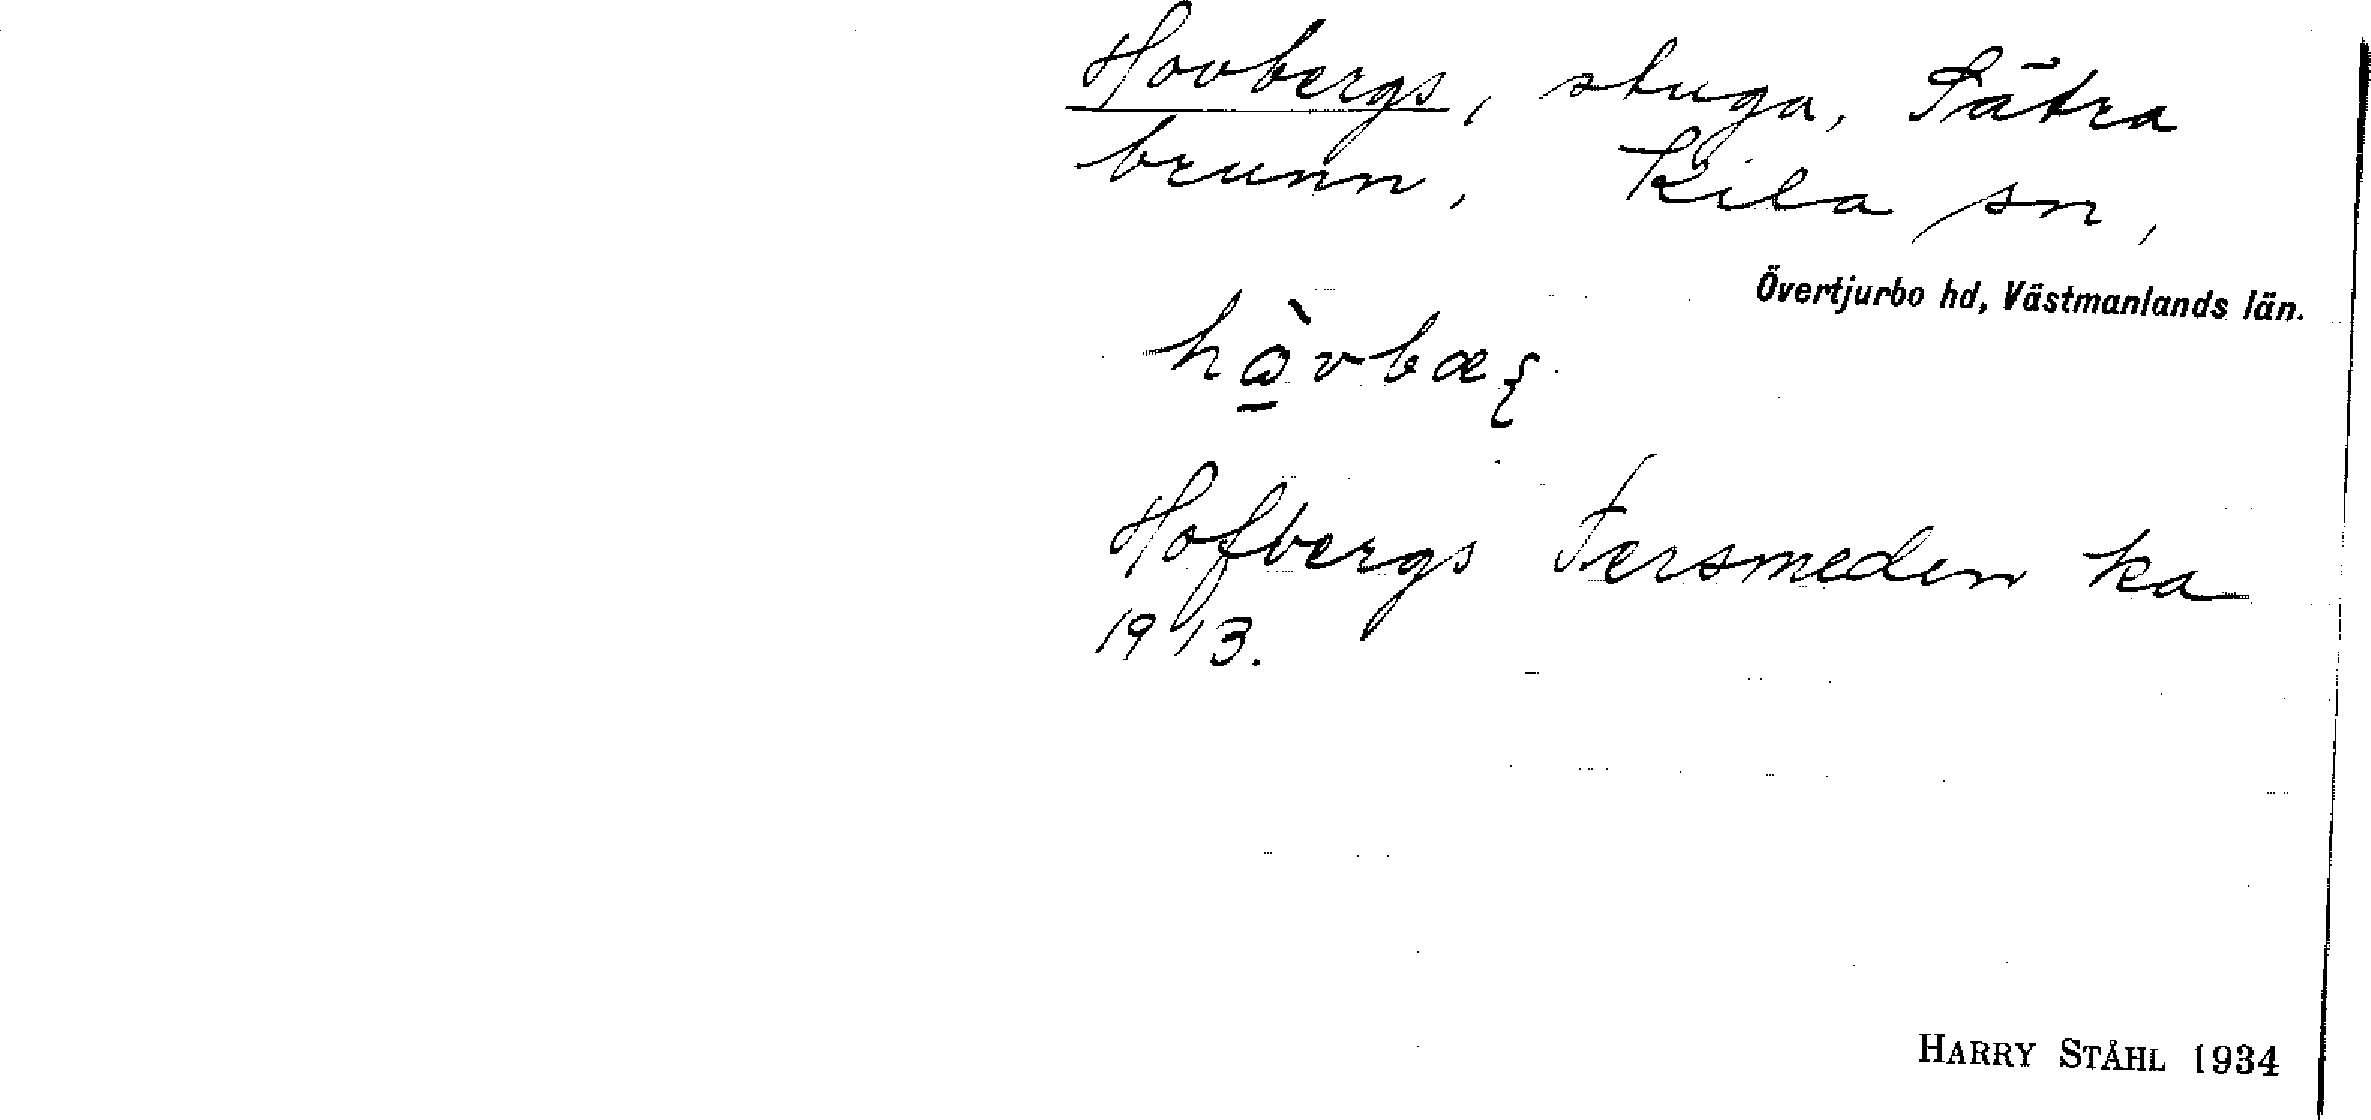 Hovbergs, stuga, Sätra
brunn, Kila sn,
Övertjurbo hd, Västmanlands län.
Hofbergs Fersmeden ka
1913.
HARRY STÅHL 1934